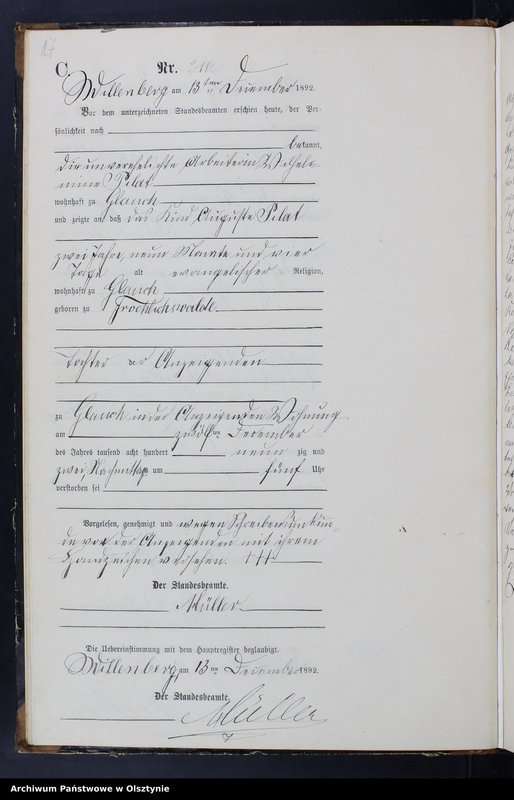 17
C.
Nr. 210
Willenberg am 13ten December 1892.
Vor dem unterzeichneten Standesbeamten erschien heute, der Per-
sönlichkeit nach
bekannt,
die unverehelichte Arbeiterin Wilhel-
mine Pilat
wohnhaft zu Glauch
und zeigte an, daß das Kind Auguste Pilat
zwei Jahre, neun Monate und vier
Tage alt evangelischer Religion,
wohnhaft zu Glauch
geboren zu Froehlichswalde
Tochter der Anzeigenden
zu Glauch in der Anzeigenden Wohnung
am zwölften December
des Jahres tausend acht hundert neun zig und
zwei, Nachmittags um fünf Uhr
verstorben sei
Vorgelesen, genehmigt und wegen Schreibensunkun-
de von der Anzeigenden mit ihrem
Handzeichen versehen. +++
Der Standesbeamte.
Müller
Die Uebereinstimmung mit dem Hauptregister beglaubigt.
Willenberg, am 13ten December 1892.
Der Standesbeamte.
Müller
Archiwum Państwowe w Olsztynie